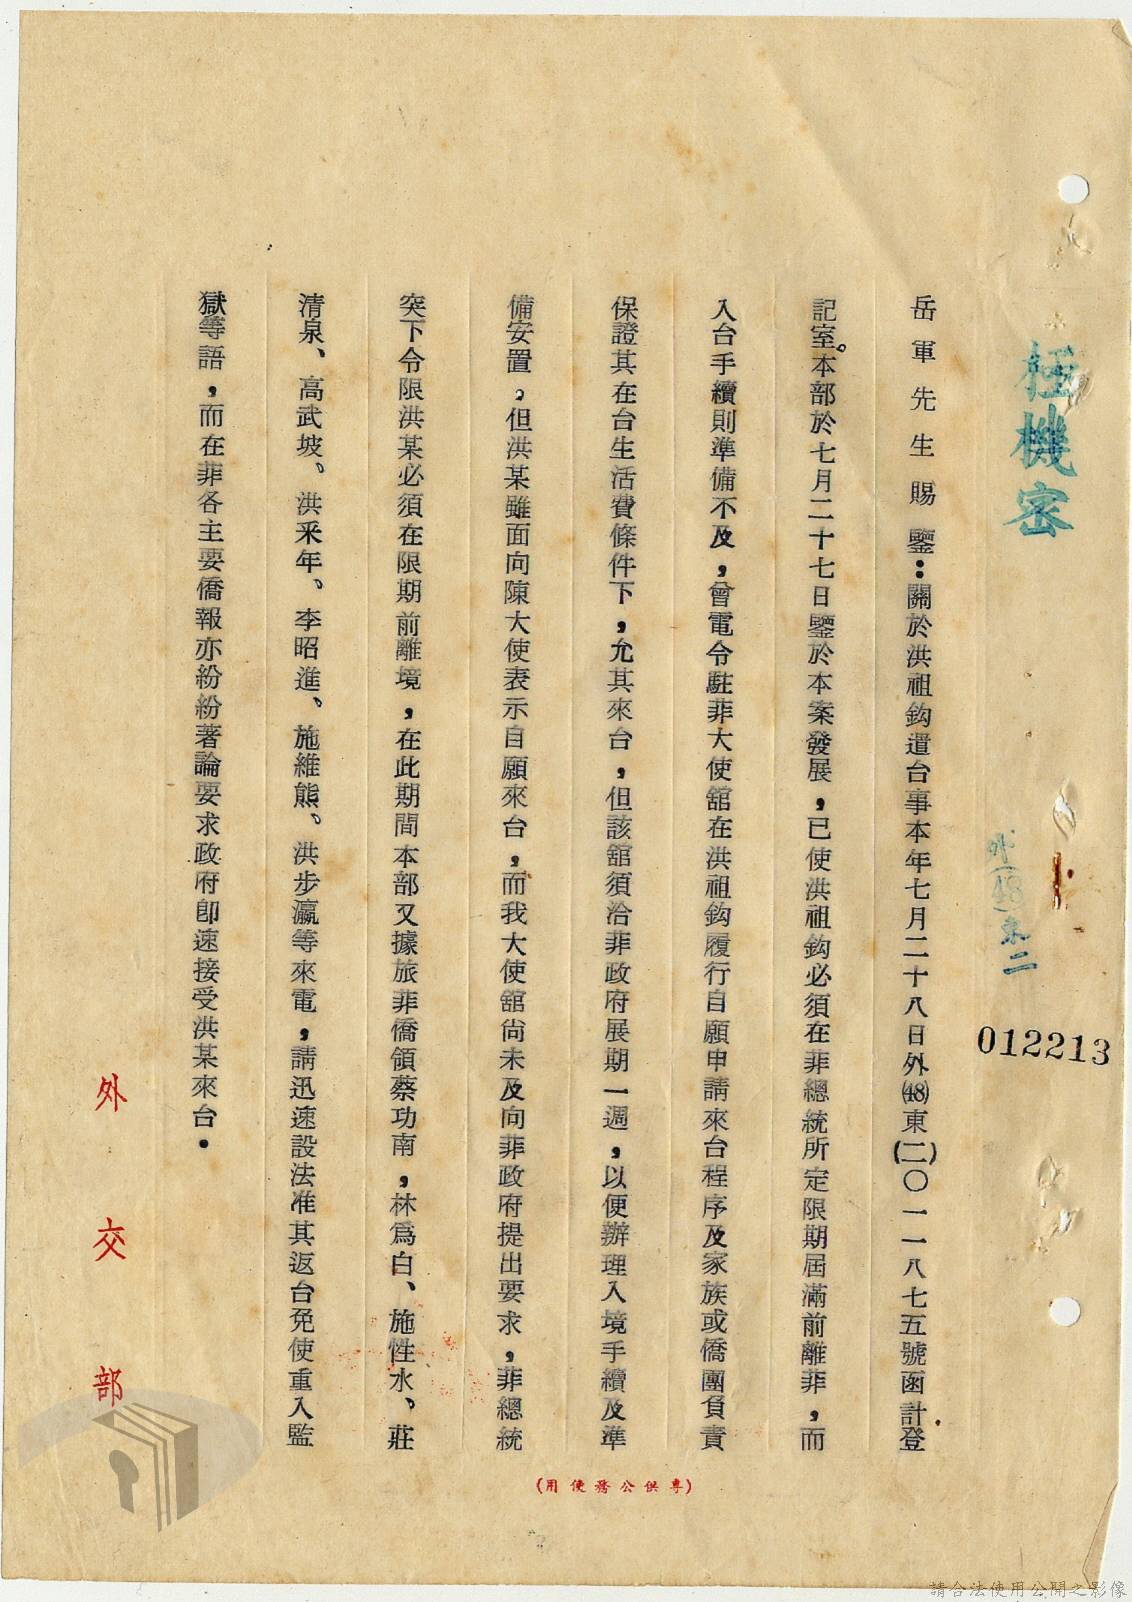 極機密
外(48)東二
012213
岳軍先生賜鑒：關於洪祖鈎遣台事本年七月二十八日外(48)東(二)〇一一八七五號函計登
記室。本部於七月二十七日鑒於本案發展，已使洪祖鈎必須在菲總統所定限期屆滿前離菲，而
入台手續則準備不及，曾電令駐菲大使舘在洪祖鈎履行自願申請來台程序及家族或僑團負責
保證其在台生活費條件下，允其來台，但該舘須洽菲政府展期一週，以便辦理入境手續及準
備安置。但洪某雖面向陳大使表示自願來台，而我大使舘尙未及向菲政府提出要求，菲總統
突下令限洪某必須在限期前離境，在此期間本部又據旅菲僑領蔡功南，林為白、施性水、莊
清泉、高武坡、洪釆年、李昭進、施維熊、洪步瀛等來電，請迅速設法准其返台免使重入監
獄等語，而在菲各主要僑報亦紛紛著論要求政府卽速接受洪某來台。
外交部
(專供公務使用)
請合法使用公開之影像